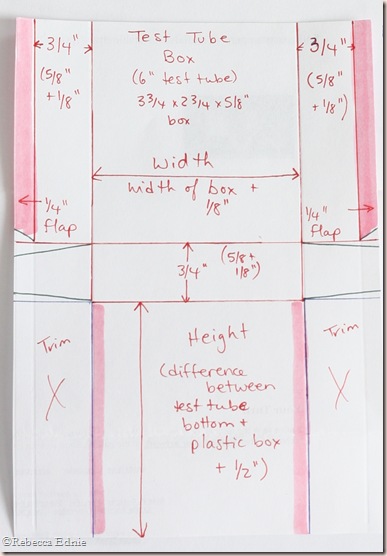 Test Tube
Box
(6" test tube)
3 3/4 x 2 3/4 x 5/8"
box
3/4"
(5/8"
+ 1/8")
3/4"
(5/8"
+ 1/8")
Width
width of box +
1/8"
1/4"
flap
1/4"
flap
3/4"
(5/8 +
1/8")
Trim
X
Height
(difference
between
test tube
bottom +
plastic box
+ 1/2")
Trim
X
©Rebecca Ednie